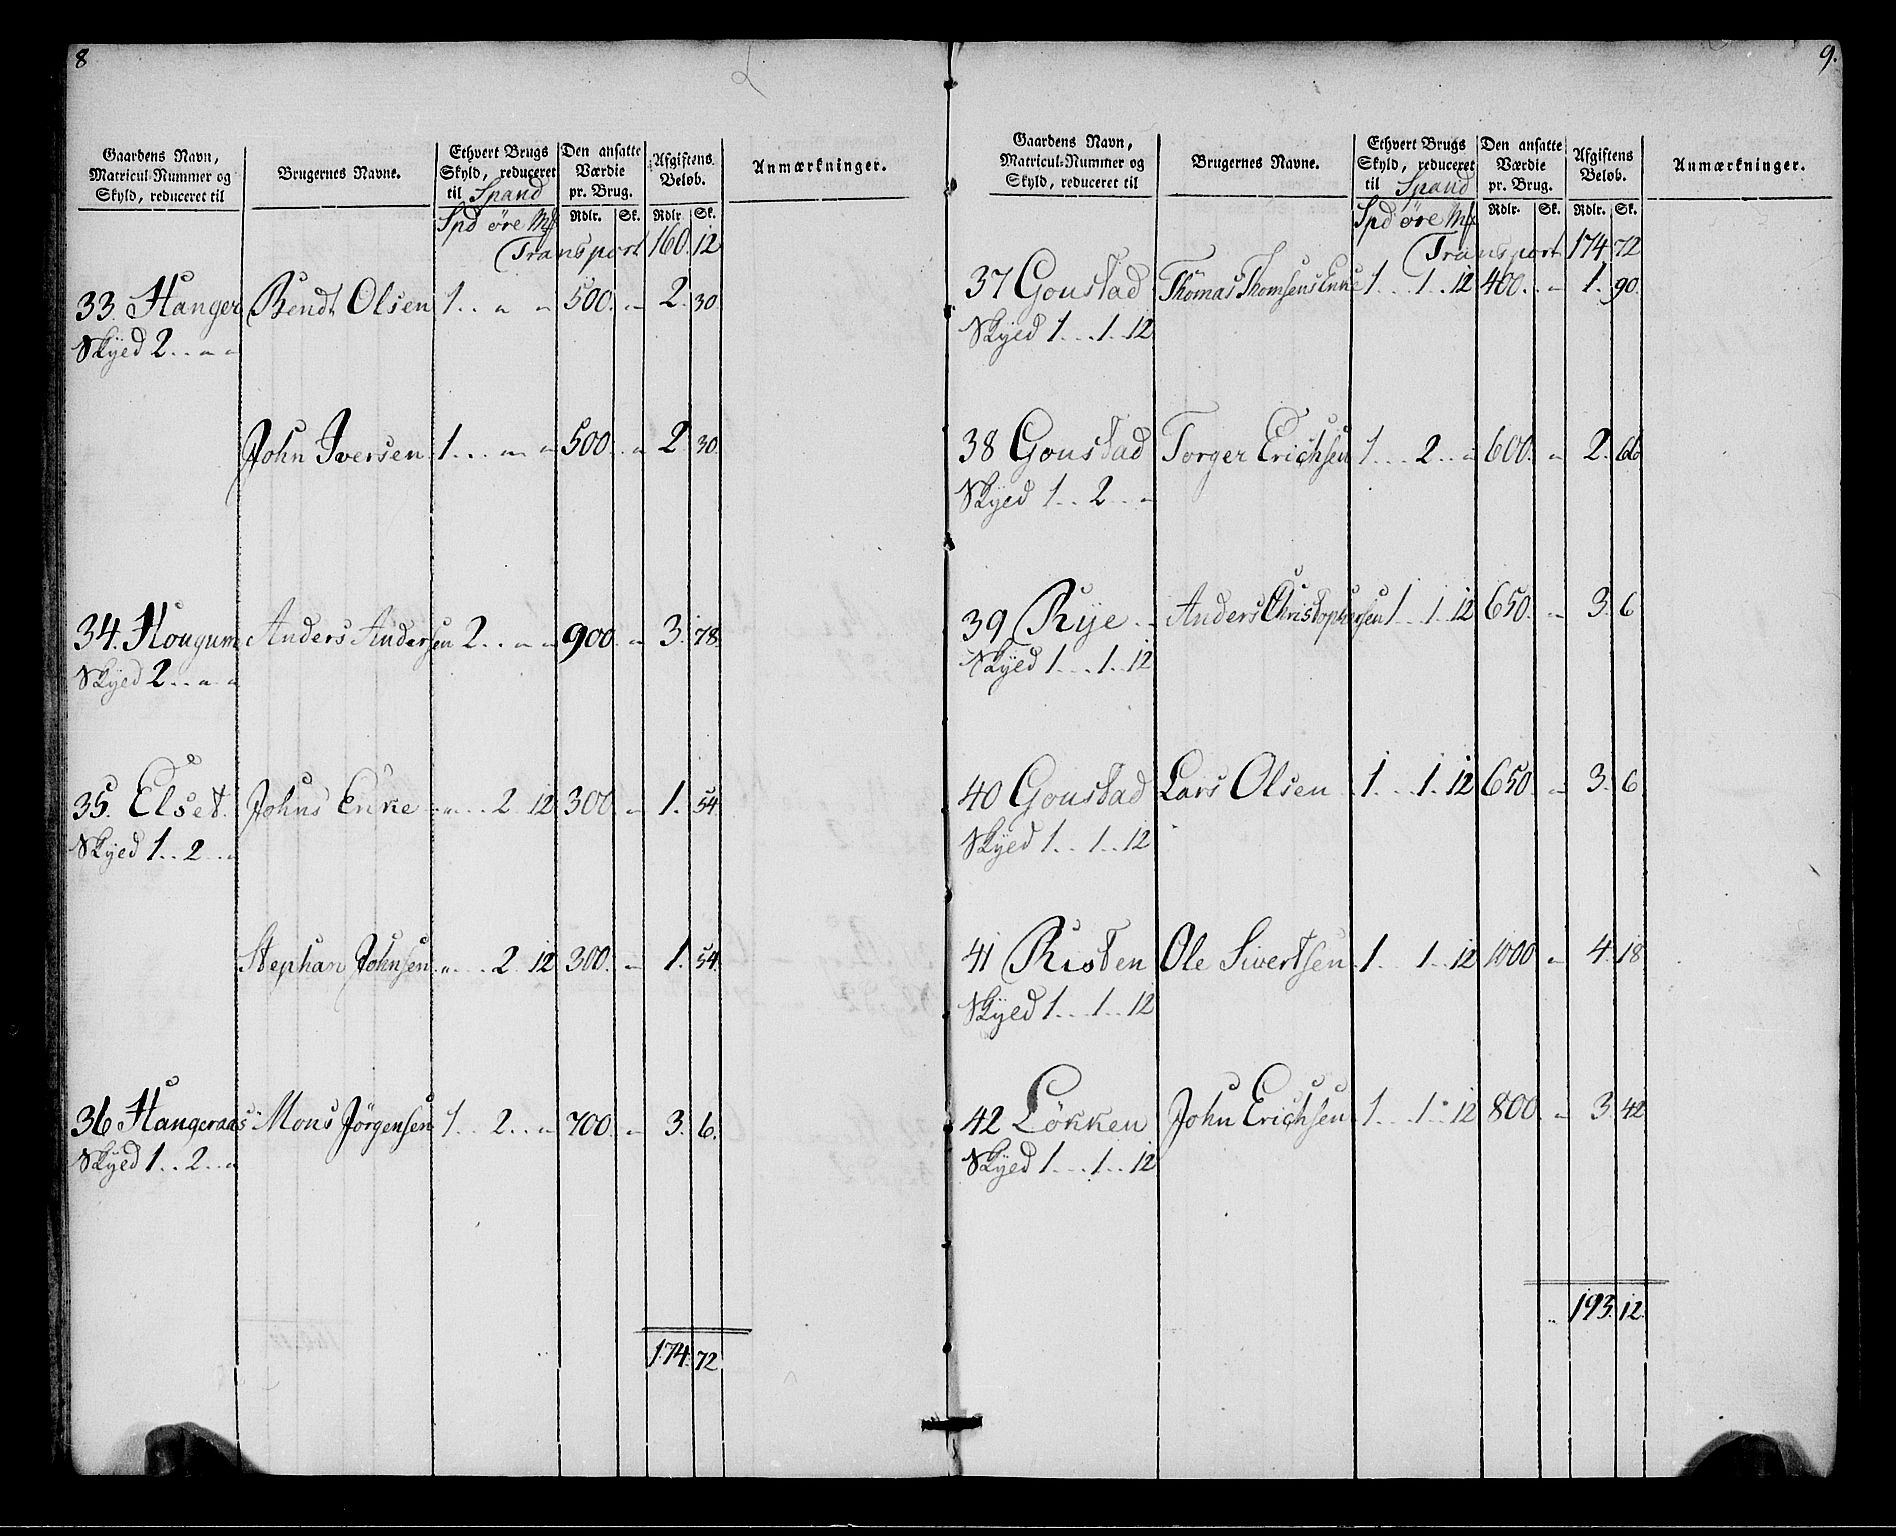 8
Gaardens Navn, Matricul-Nummer og Skyld, reduceret til | Brugernes Navne. | Ethvert Brugs Skyld, reduceret til Spand | Den ansatte Værdie pr. Brug. | Afgiftens Beløb. | Anmærkninger.
Spd øre Mk | Rdlr. | Sk. | Rdlr. | Sk.
Transport 160. 12
33. Hanger Bendt Olsen 1 . . " " 500. " 2. 30.
Skyed 2 . . " "
John Iversen 1 . . . " " 500. " 2 30.
34. Hougum Anders Andersen 2 . . " " 900. " 3. 78.
Skyed 2 . . " "
35. Elset. Johns Enke " . . 2 12 300. " 1. 54.
Skyed 1 . . 2 . . "
Stephan Johnsen " . . . 2 12 300. " 1. 54.
36 Hangeraas Mons Jörgensen 1 . . 2 . . " 700. " 3. 6.
Skyed 1 . . 2 . . "
174. 72
9.
Gaardens Navn, Matricul-Nummer og Skyld, reduceret til | Brugernes Navne. | Ethvert Brugs Skyld, reduceret til Spand | Den ansatte Værdie pr. Brug. | Afgiftens Beløb. | Anmærkninger.
Spd øre Mk | Rdlr. | Sk. | Rdlr. | Sk.
Transport 174 72
37 Goustad Thomas Thomsens Enke 1 . . 1 . . 12 400. " 1. 90.
Skyed 1 . . . 1 . . 12
38 Goustad Torger Erichsen 1 . . . 2 . . " 600. " 2. 66
Skyed 1 . . 2 . . "
39 Rye Anders Christophersen 1 . . 1 . . 12 650. " 3. 6
Skyed 1 . . . 1 . . 12
40 Goustad Lars Olsen 1 . . . 1 . 12 650. " 3. 6
Skyed 1 . . 1 . . 12
41 Risten Ole Sivertsen 1 . . 1 . . 12 1000 " 4. 18
Skyed 1 . . . 1 . . 12
42 Lökken John Erichsen 1 . . . 1 . . 12 800. " 3. 42
Skyed 1 . . . 1 . . 12
193. 12.